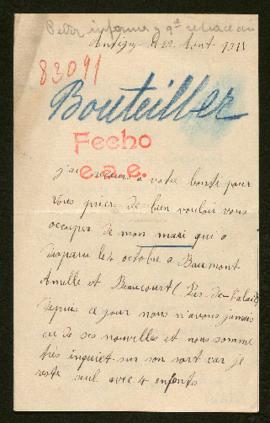 Pedir informes y qe
Antigny le 22 Aout 1915
83091
Bouteiller
Fecho
e.a.e.
j'ai recours a votre bonté pour
vous prier de bien vouloir vous
occuper de mon mari qui a
disparu le 4 octobre a Beaumont
Amelle et Beaucourt (Pas-de-Calais)
depuis ce jour nous n'avons jamais
eu de ses nouvelles et nous somme
très inquiet sur son sort car je
reste seul avec 4 enfants